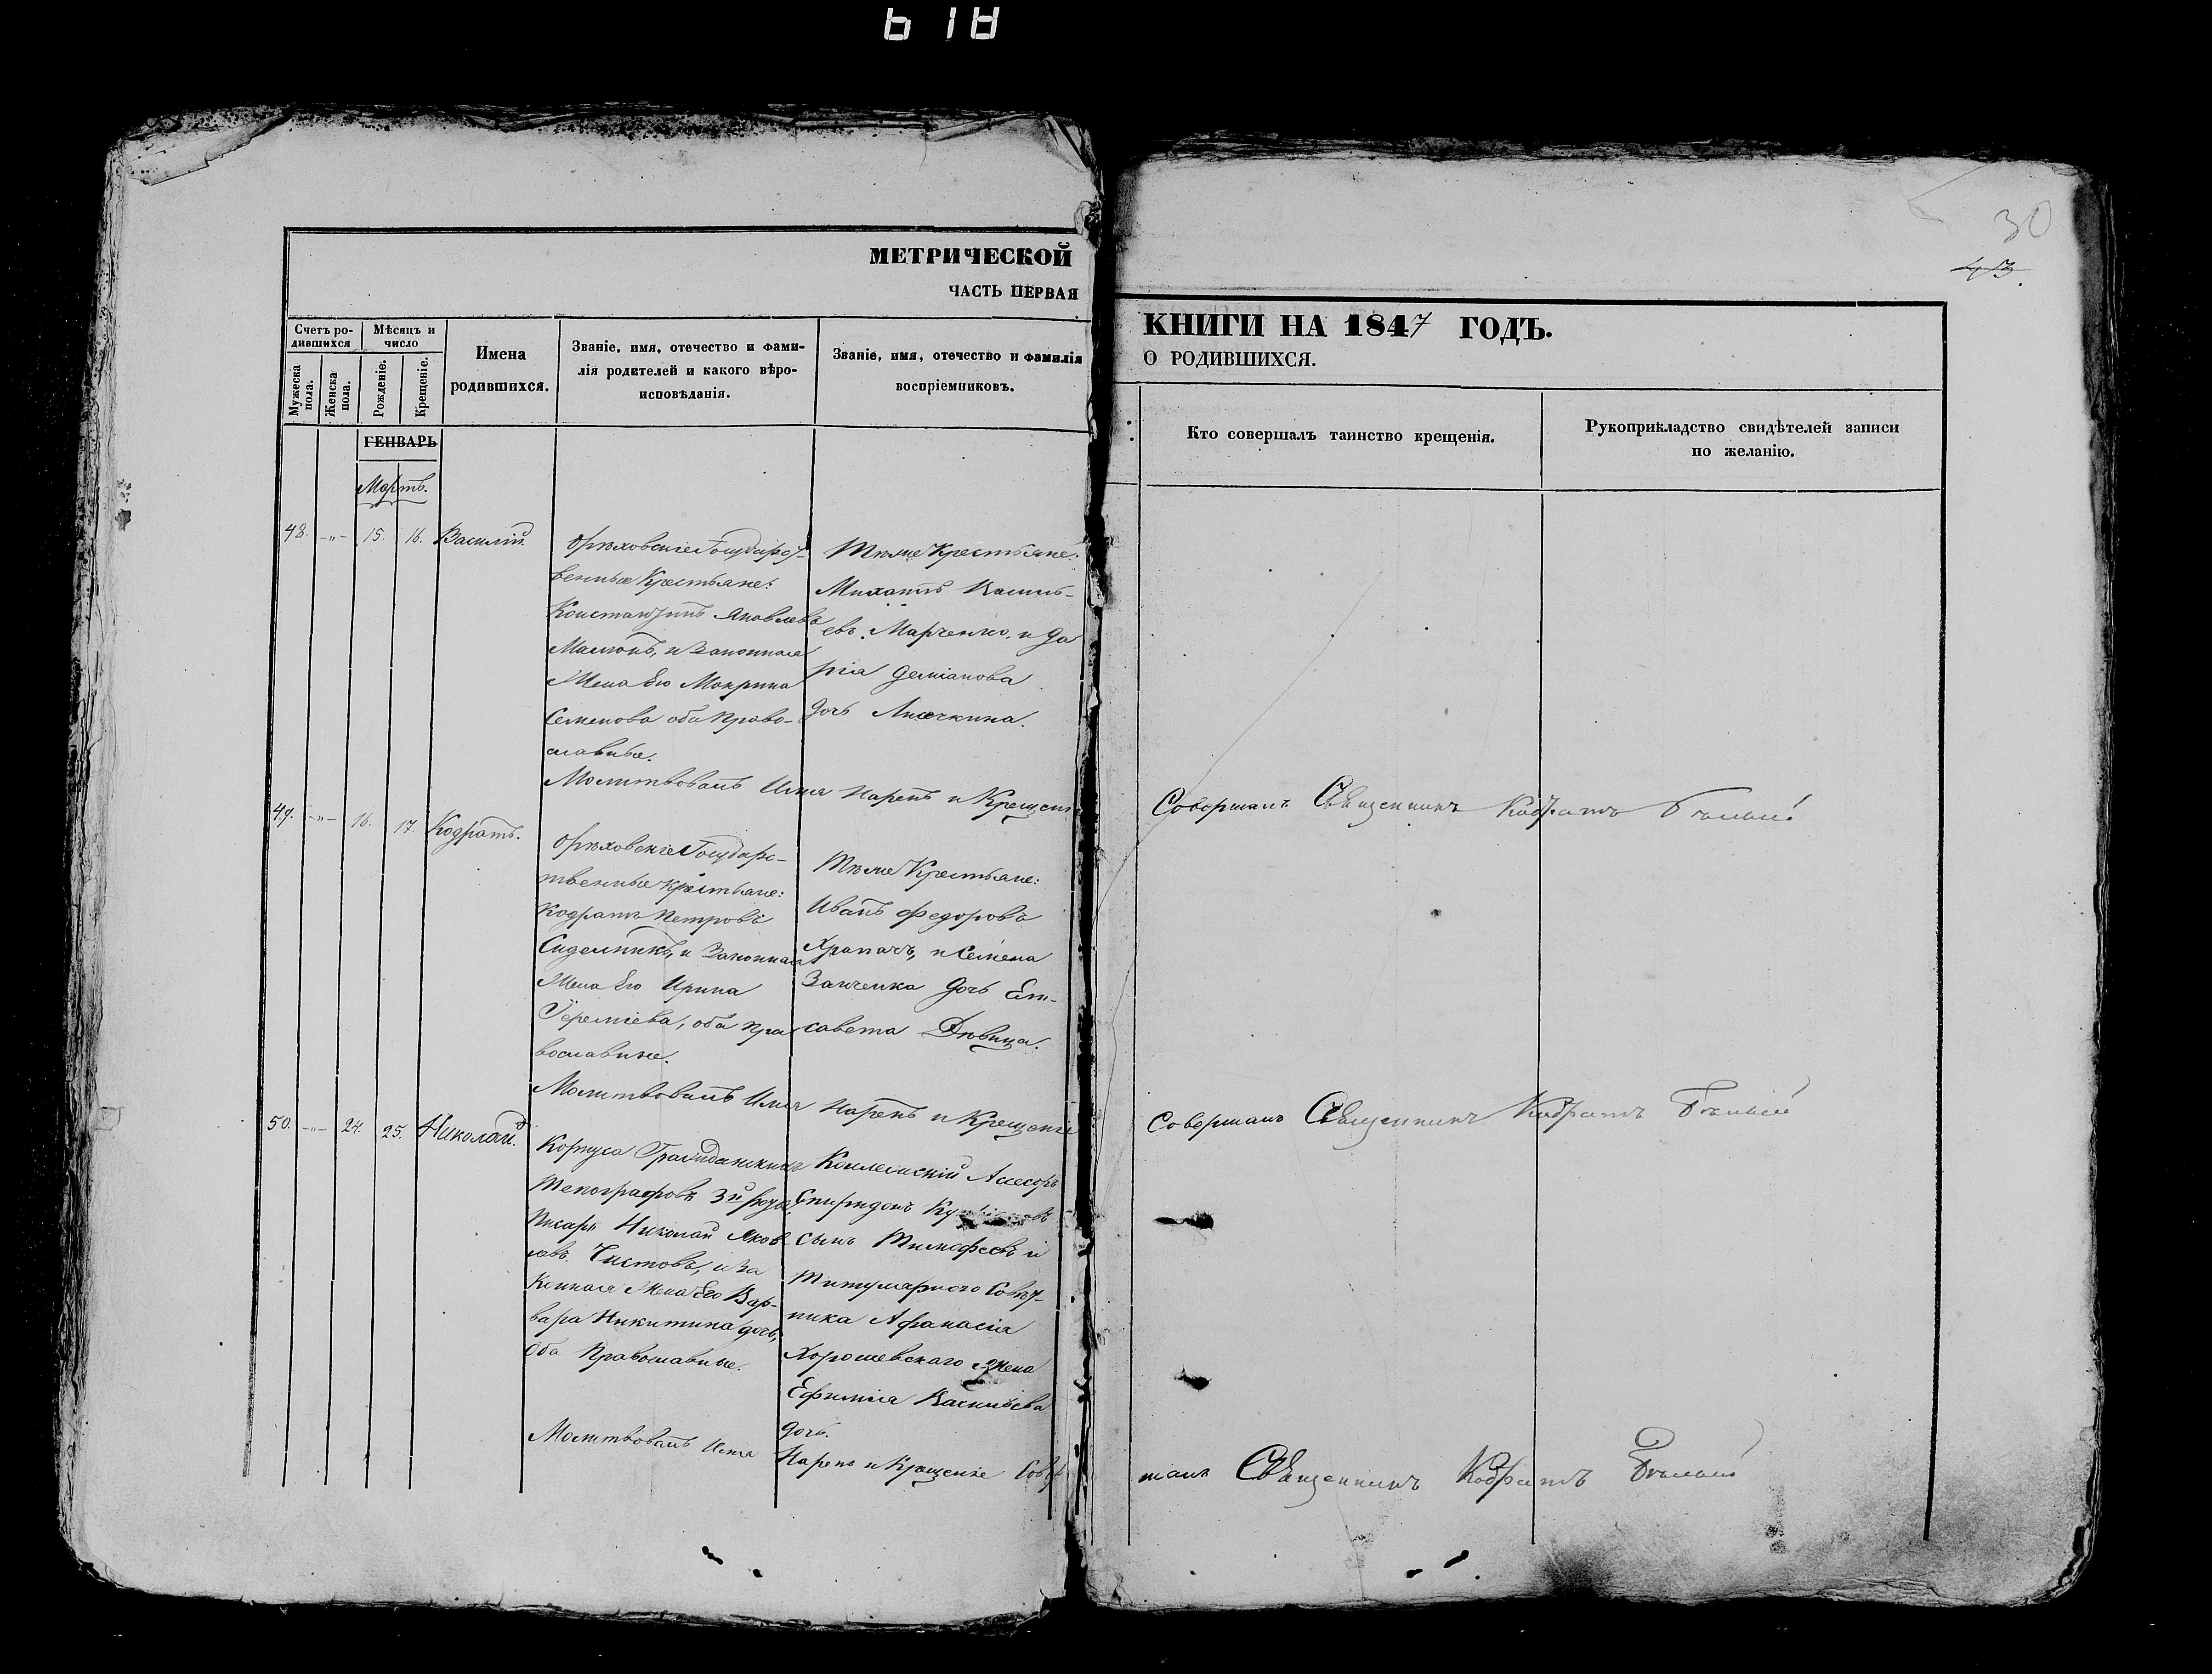 618
30
43.
МЕТРИЧЕСКОЙ
ЧАСТЬ ПЕРВАЯ
КНИГИ НА 1847 ГОДЪ.
О РОДИВШИХСЯ.
Счетъ ро-
дившихся
Мужеска
пола.
Женска
пола.
Мѣсяцъ и
число
Рожденіе.
Крещеніе.
Имена
родившихся.
Званіе, имя, отечество и фами-
лія родителей и какого вѣро-
исповѣданія.
Званіе, имя, отечество и фамилія
воспріемниковъ.
Кто совершалъ таинство крещенія.
Рукоприкладство свидѣтелей записи
по желанію.
ГЕНВАРЬ
Мартъ.
48. -„- 15. 16. Василій
Орѣховскіе Государст-
венные Крестьяне:
Константинъ Яковлевъ
и Законная
Жена Его Макрина
Семенова оба Право-
славные.
Тѣже Крестьяне:
Михаилъ Василь-
евъ Марченко, и Да
рія Деміанова
дочь
Молитвовалъ Имя Нарекъ и Крещеніе
Совершалъ Священникъ Кодратъ Бѣлый
49. -„- 16. 17. Кодратъ.
Орѣховскіе Государс-
твенные Крестьяне:
Кодратъ Петровъ
и Законная
Жена Его Ирина
Іереміева, оба Пра
вославные.
Тѣже Крестьяне:
Иванъ Федоровъ
Храпачъ, и Семена
Заиченка дочь Ели-
савета Дѣвица.
Молитвовалъ Имя Нарекъ и Крещеніе
Совершалъ Священникъ Кодратъ Бѣлый
50. -„- 24. 25. Николай.
Корпуса Гражданскихъ
Топографовъ 3й
Писарь Николай Яков
левъ Чистовъ, и за
конная Жена Его Вар-
вара Никитина дочь,
оба Православные.
Коллежскій Асесоръ
Спиридонъ
сынъ Тимофеевъ и
Титулярного Совѣт-
ника Афанасія
Хорошевскаго Жена
Ефимія Васильева
дочь.
Молитвовалъ Имя Нарекъ и Крещеніе Совер
шалъ Священникъ Кодратъ Бѣлый